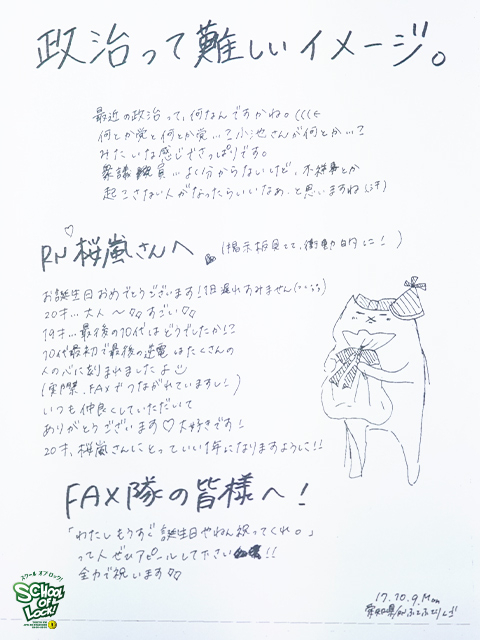 政治って難しいイメージ。
最近の政治って、何なんですかね。(((←
何とか党と何とか党…?小池さんが何とか…?
みたいな感じでさっぱりです。
衆議院議員…よく分からないけど、不祥事とか
起こさない人がなったらいいなぁ、と思いますね
RN 桜嵐さんへ
(掲示板見てて、衝動的に!)
お誕生日おめでとうございます!1日遅れすみません
20才…大人〜 すごい
19才…最後の10代はどうでしたか!?
10代最初で最後の逆電はたくさんの
人の心に刻まれましたよ
(実際、FAXでつながれていますし!)
いつも仲良くしていただいて
ありがとうございます♡大好きです!
20才、桜嵐さんにとっていい1年になりますように!!
FAX隊の皆様へ!
「わたしもうすぐ誕生日やねん祝ってくれ。」
って人ぜひアピールして下さい!!
全力で祝います
17.10.9.Mon
愛知県
スクール オブ ロック!
SCHOOL OF LOCK!